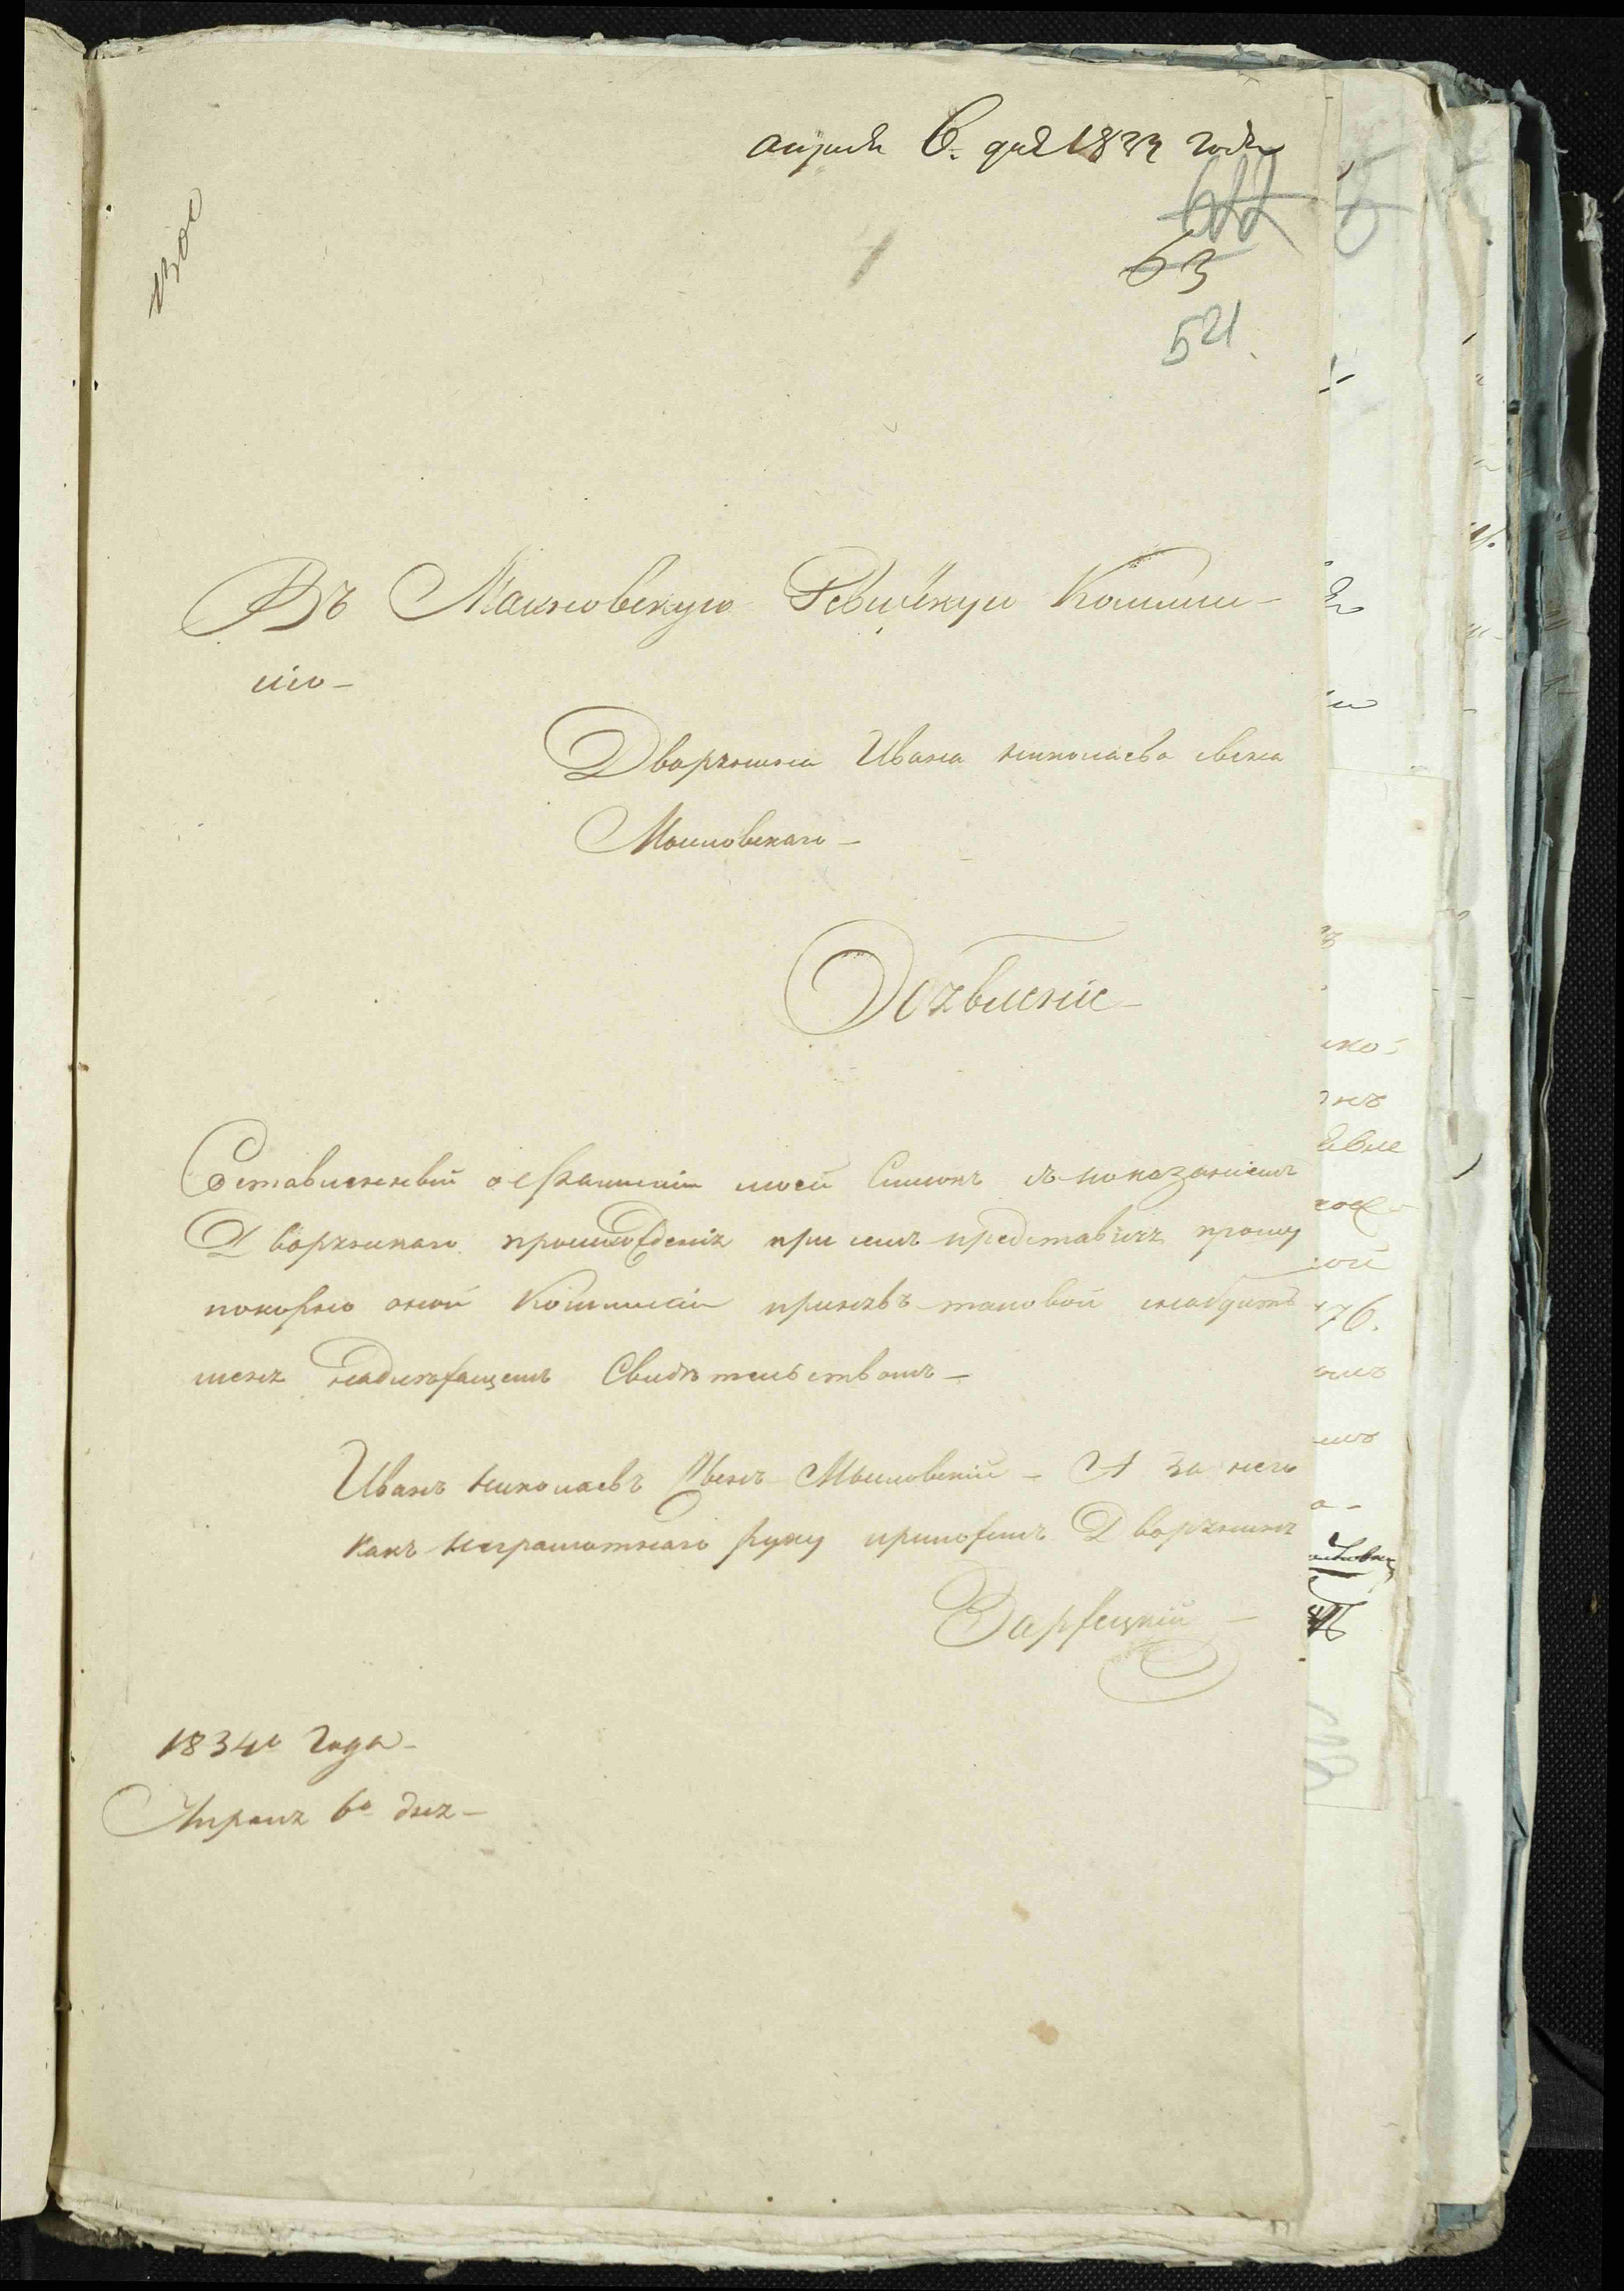 апреля 6. дня 1834 года
1300
63
521
Въ Махновскую Ревизскую Комми-
сію-
Дворянина Ивана Николаева сына
Мысловскаго-
Объявленіе-
Составленный о Фамиліи моей Списокъ съ показаніемъ
Дворянскаго произхожденія при семъ представляя прошу
покорно оной Коммисіи принявъ таковой снабдить
меня надлежащемъ Свидѣтельствомъ-
Иванъ Николаевъ Сынъ Мысловскій- А за него
какъ неграмотнаго руку приложилъ Дворянинъ
1834го Года-
Апреля 6го дня-